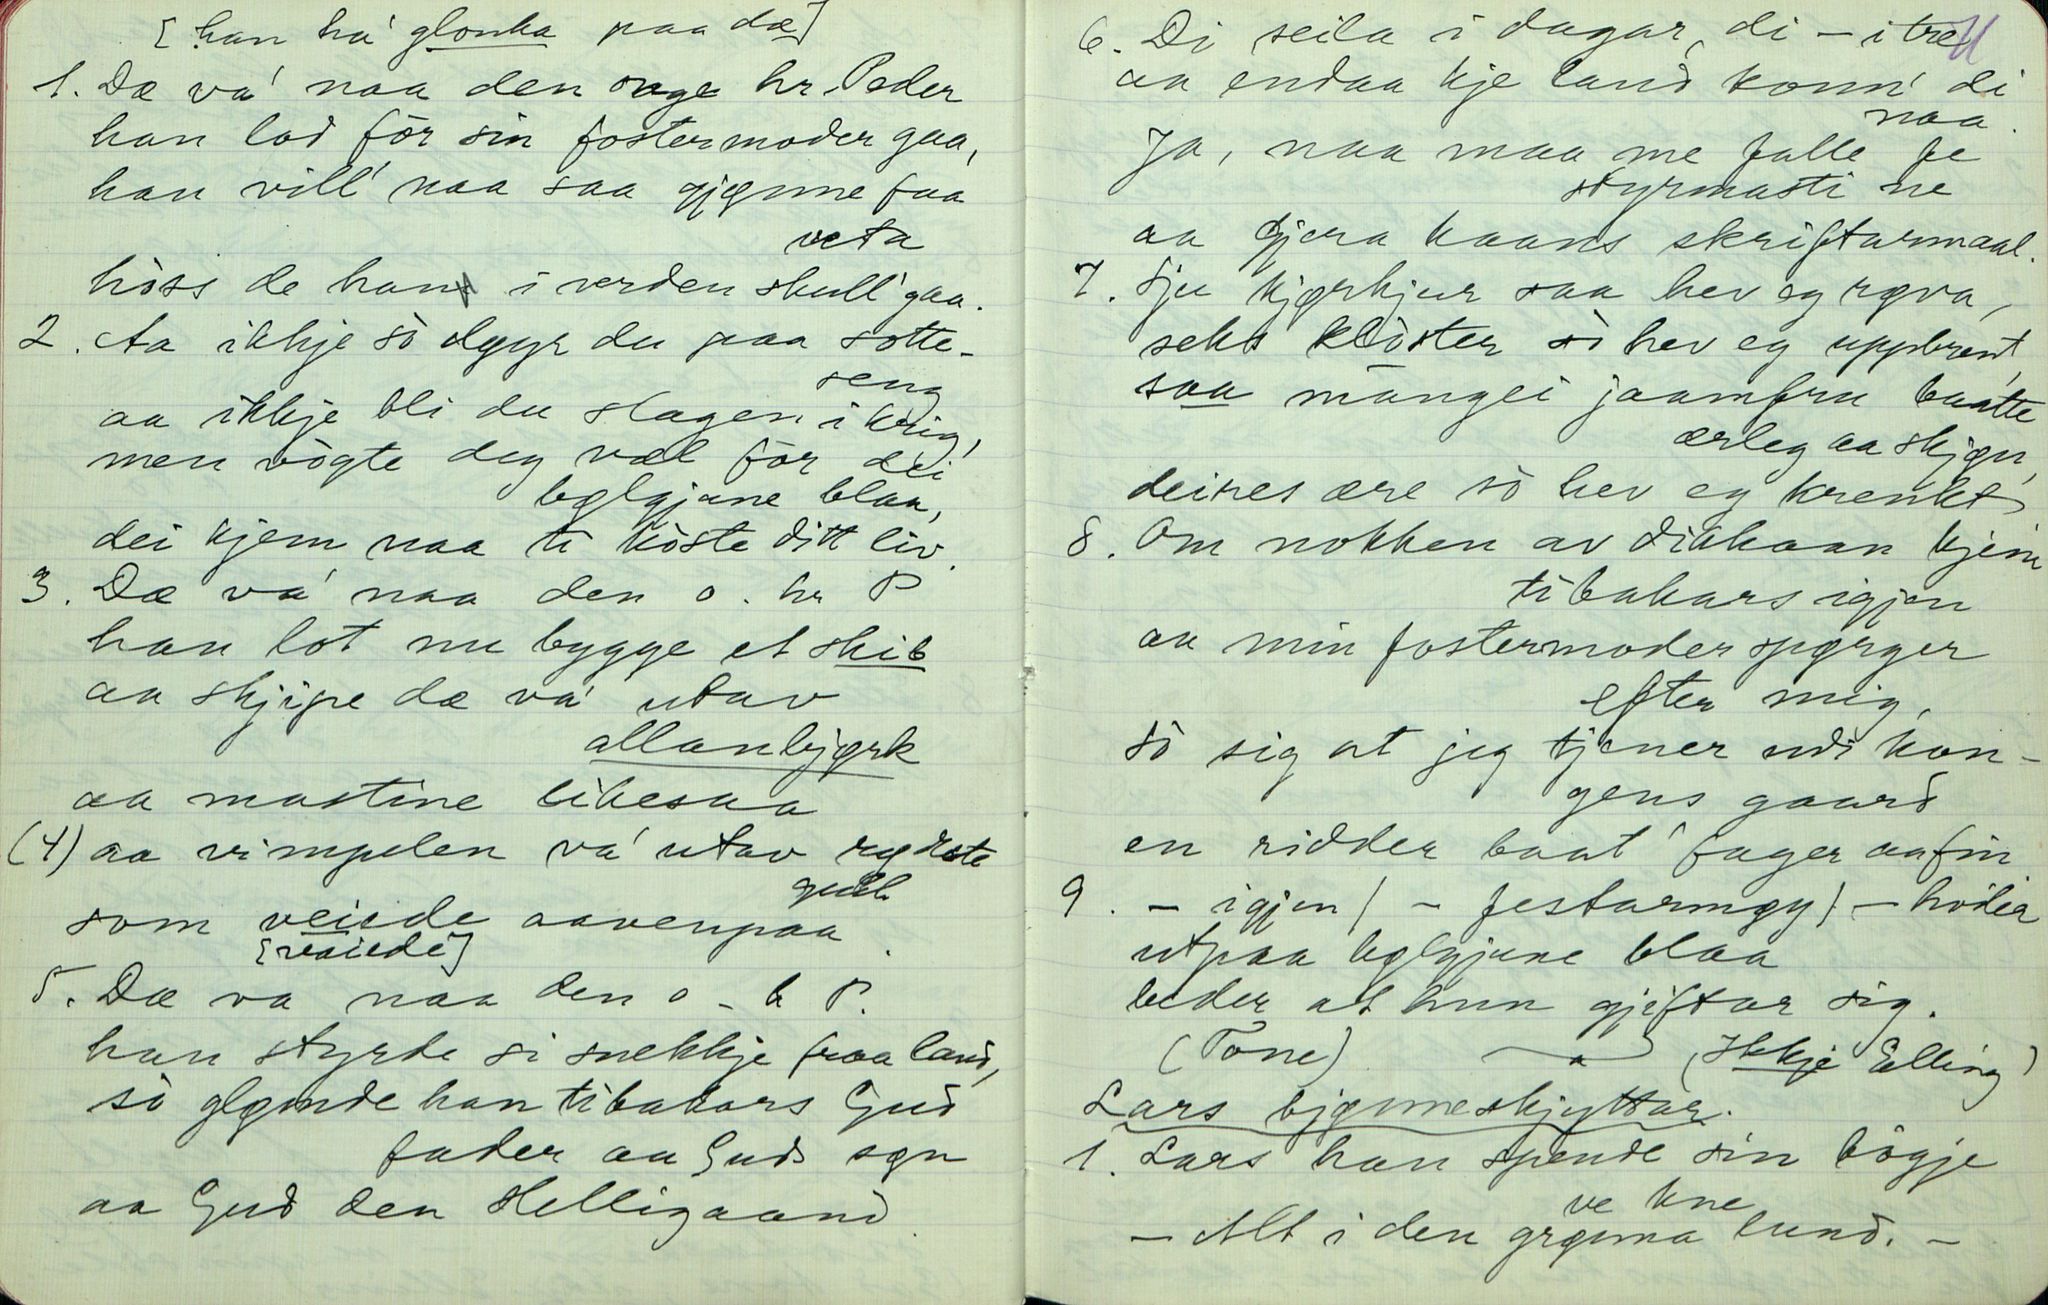 [han há glonka paa dæ]
1. Dæ vá naa den onge hr. Peder
han lod för sin fostermoder gaa,
han vill' naa saa gjønne faa
veta
hòss de han i verden skull' gaa.
2. Aa ikkje sò døyr du paa sotte-
seng
aa ikkje bli du slagen i krig,
men vògte deg væl för dei
bølgjune blaa,
dei kjem naa ti kòste ditt liv.
3. Dæ vá naa den o. hr P
han lot nu bygge et skib
aa skjipe dæ vá utav
allanbjørk
aa mastine likesaa
(4) aa vimpelen vá utav rødste
guld
som veiede aavenpaa.
[vaiede]
5. Dæ va naa den o - h P.
han styrde si snekkje fraa land,
sò glømde han tibakars Gud
fader aa Guds søn
aa Gud den Helligaand
6. Di seila i dagar, di - i tre
aa endaa kje land konn' di
naa.
Ja, naa maa me falle fe
styrmasti ne
aa gjera haans skriftarmaal.
7. Sju kjørkjur saa hev eg røva,
seks klòster sò hev eg uppbrent,
saa mangei jaamfru baatte
ærleg aa skjøn,
deires ære sò hev eg krenkt
8. Om nokken av dikkaan kjem
tibakars igjen
aa min fostermoder spørger
efter mig,
sò sig at jeg tjener udi kon-
gens gaard
en ridder baat' fager aa fin
9. - igjen / - festarmøy / - hviler
utpaa bølgjune blaa
beder at hun gjiftar sig.
(Tone) (Ikkje Elling)
Lars bjønneskjyttar.
1. Lars han spende sin bògje
ve kne
- Alt i den grøna lund. -